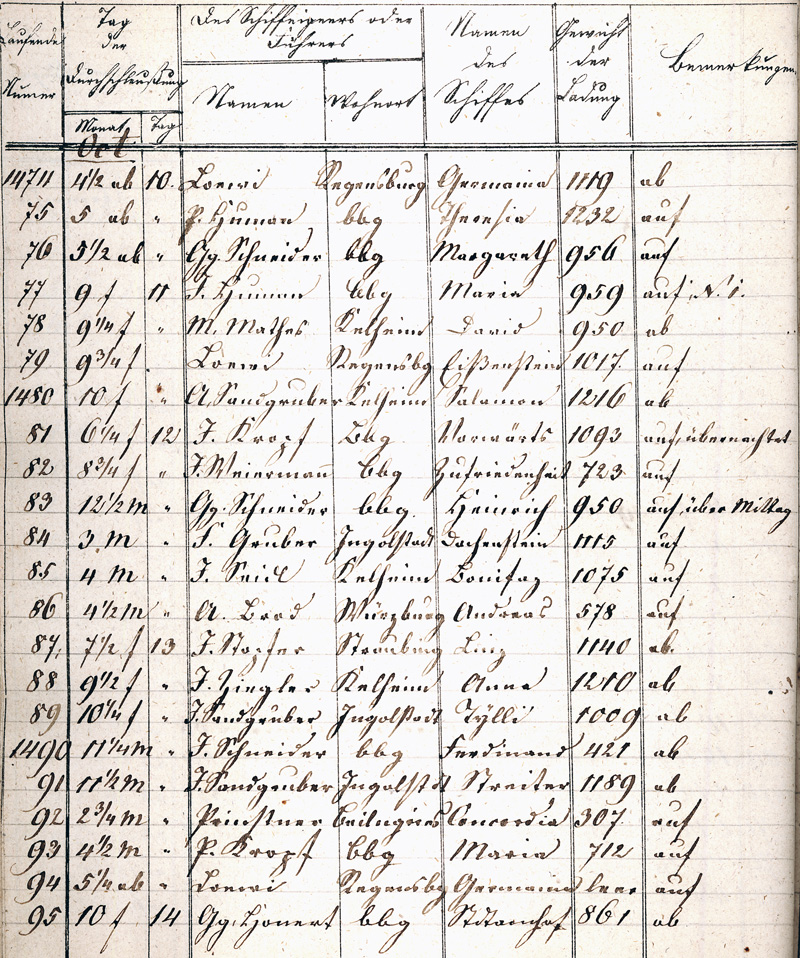 Laufende Numer | Tag der Durchschleußung | Des Schiffeigners oder Führers | Namen des Schiffes | Gewicht der Ladung | Bemerkungen
Monat | Tag | Namen | Wohnort
Oct
1474 4½ ab 10. Loewi Regensburg Germania 1119 ab
75 5 ab " P. Human bbg Theresia 1232 auf
76 5½ ab " Gg. Schneider bbg Margareth 956 auf
77 9 f 11 J. Human bbg Maria 959 auf, N. 1.
78 9¼ f " M. Mathes Kelheim David 950 ab
79 9¾ f . Loewi Regensbg Eißenstein 1017. auf
1480 10 f " A. Sandgruber Kelheim Salamon 1216 ab
81 6¼ f 12 J. Kropf Bbg Vorwärts 1093 auf, übernachtet
82 8¾ f " J. Weiermann bbg Zufriedenheit 723 auf
83 12½ m " Gg. Schneider bbg. Heinrich 950 auf, über Mittag
84 3 M " F. Gruber Ingolstadt Dachenstein 1115 auf
85 4 M " J. Seidl Kelheim Bonifaz 1075 auf
86 4½ m " A. Brod Würzburg Andreas 578 auf
87. 7½ f 13 J. Stopfer Straubing Linz 1140 ab.
88 9½ f " J. Ziegler Kelheim Anna 1210 ab
89 10¼ f " J. Sandgruber Ingolstadt Tylli 1009 ab
1490 11¼ m " J. Schneider bbg Ferdinand 421 ab
91 11½ m " J. Sandgruber Ingolstdt Streiter 1189 ab
92 2¾ m " Prinstner Beilngries Concordia 307. auf
93 4½ m " P. Kropf bbg Maria 712 auf
94 5¼ ab " Loewi Regensbg Germania leer auf
95 10 f 14 Gg. Honert bbg Stdtamhof 861 ab